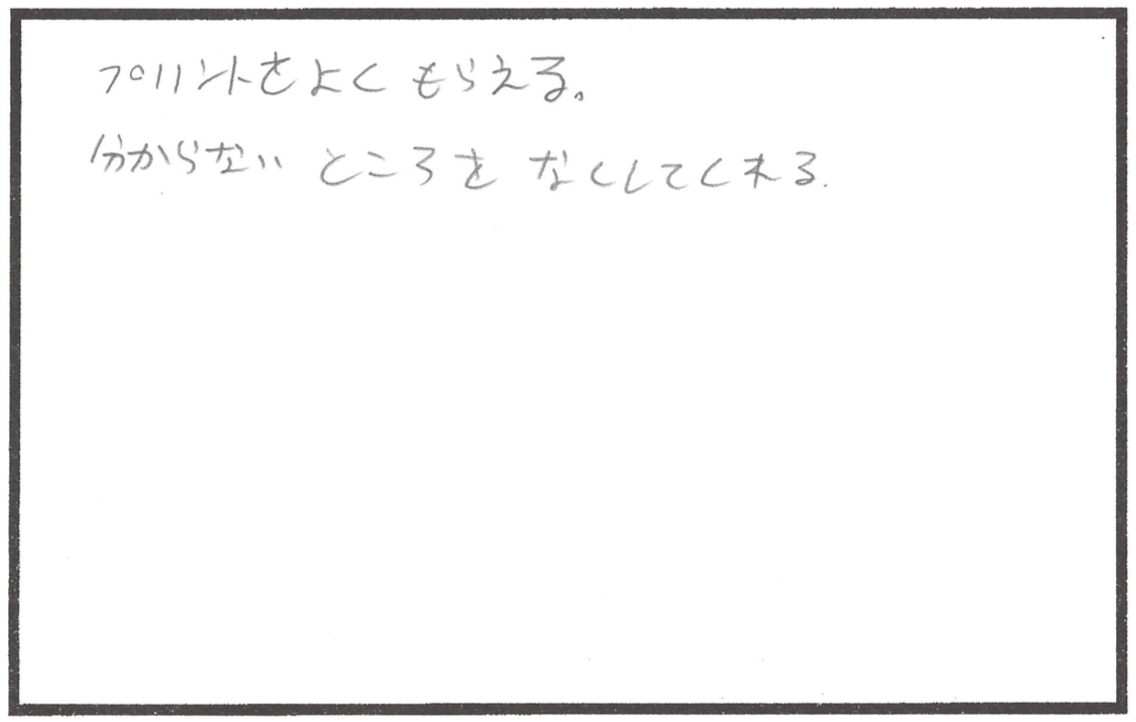 プリントをよくもらえる。
分からないところをなくしてくれる.